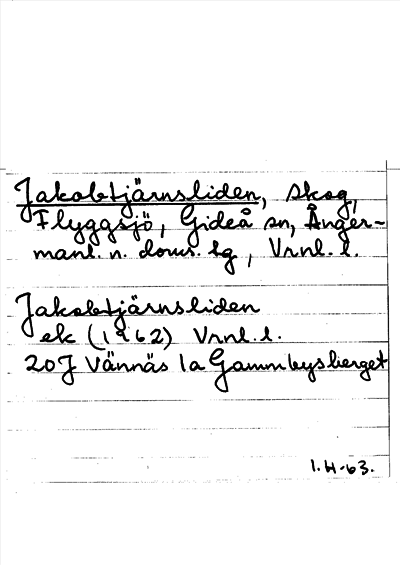 Jakobtjärnsliden, skog,
Flyggsjö, Gideå sn, Ånger-
manl. n. doms. lg, Vrnl. l.
Jakobtjärnsliden
ek (1962) Vrnl. l.
20J Vännäs 1a Gammbysberget
I.H-63.